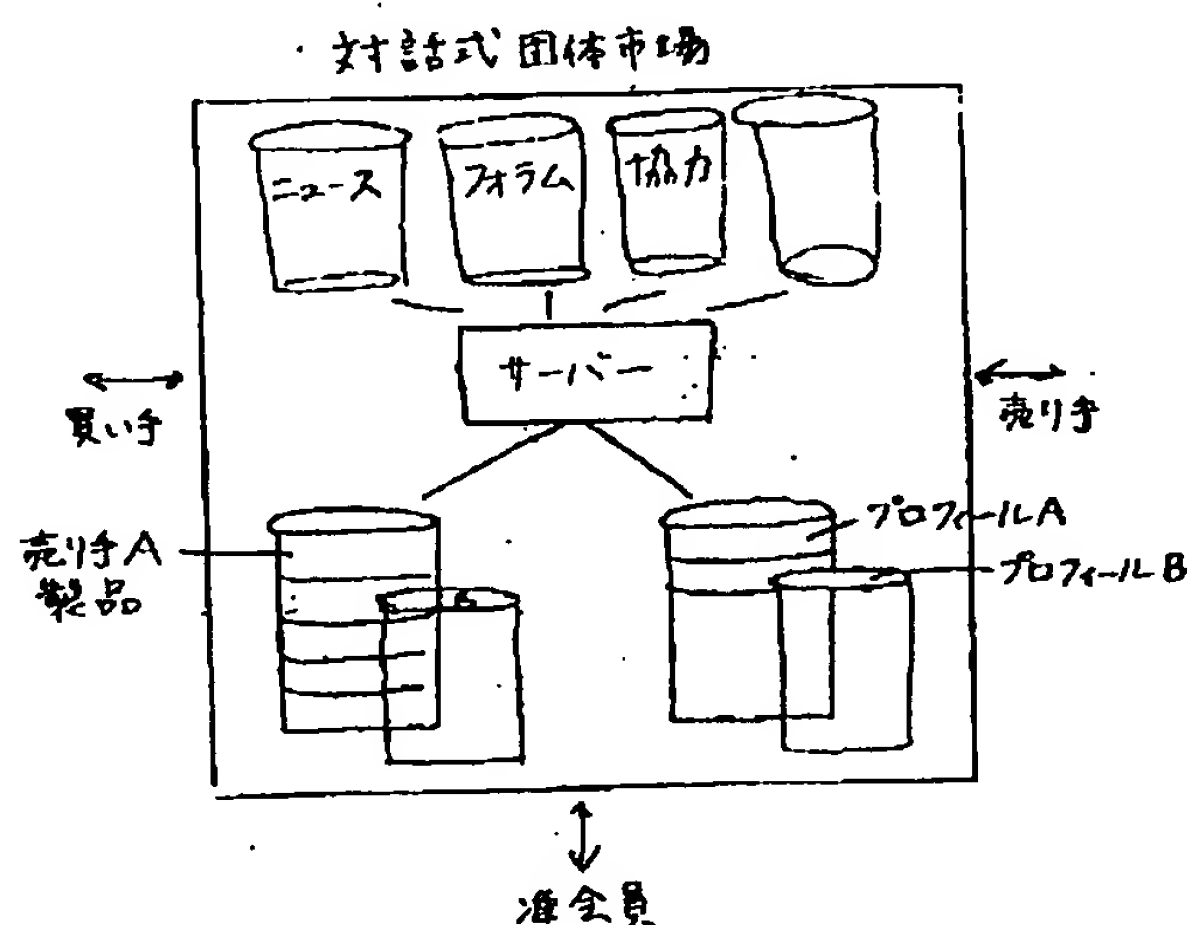 対話式団体市場
ニュース
フォラム
協力
サーバー
買い手
売り手
売り手A
製品
B
プロフィールA
プロフィールB
准会員